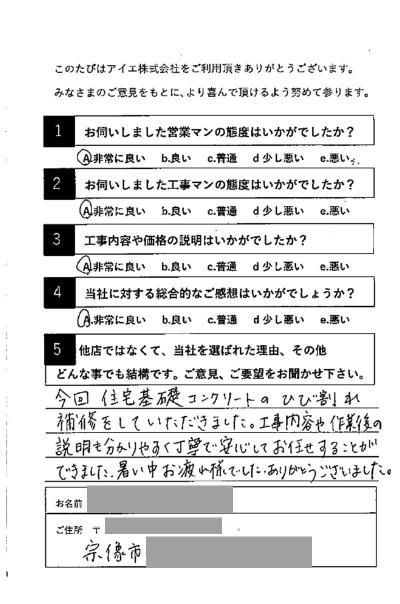 このたびはアイエ株式会社をご利用頂きありがとうございます。
みなさまのご意見をもとに、より喜んで頂けるよう努めて参ります。
1 お伺いしました営業マンの態度はいかがでしたか？
A.非常に良い b.良い c.普通 d 少し悪い e.悪い
2 お伺いしました工事マンの態度はいかがでしたか？
A.非常に良い b.良い c.普通 d 少し悪い e.悪い
3 工事内容や価格の説明はいかがでしたか？
A.非常に良い b.良い c.普通 d 少し悪い e.悪い
4 当社に対する総合的なご感想はいかがでしょうか？
A.非常に良い b.良い c.普通 d 少し悪い e.悪い
5 他店ではなくて、当社を選ばれた理由、その他
どんな事でも結構です。ご意見、ご要望をお聞かせ下さい。
今回 住宅基礎コンクリートの ひび割れ
補修をしていただきました。工事内容や作業後の
説明も分かりやすく丁寧で安心してお任せすることが
できました。暑い中お疲れ様でした。ありがとうございました。
お名前
ご住所 〒
宗像市